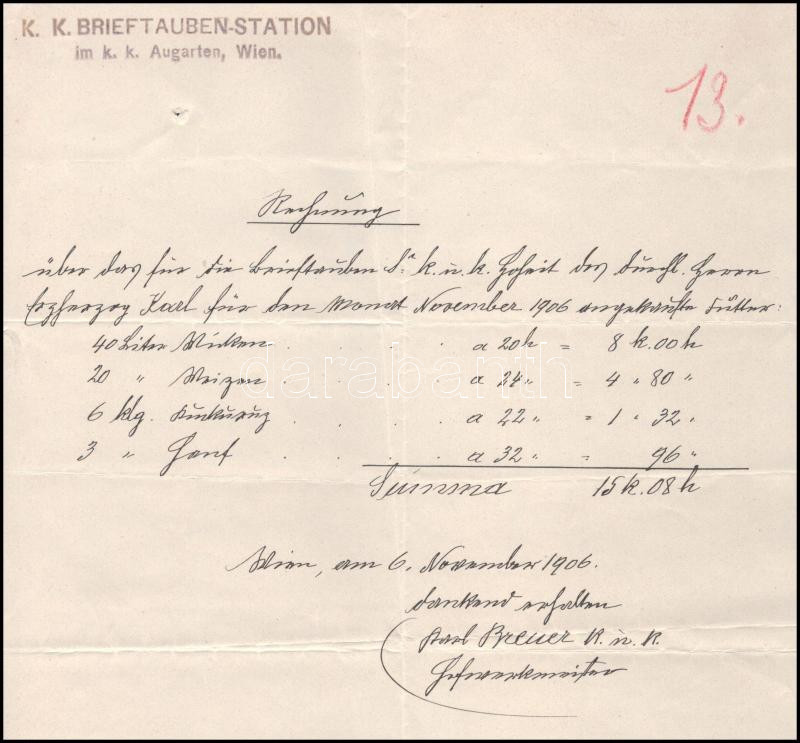 K. K. BRIEFTAUBEN-STATION
im k. k. Augarten, Wien.
13.
Rechnung
über das für die Brieftauben Sr. k. u. k. Hoheit des durchl. Herrn
Erzherzog Karl für den Monat November 1906 angekaufte Futter:
40 Liter Wicken . . . . a 20 h = 8 k. 00 h
20 " Weizen . . . . a 24 " = 4 " 80 "
6 klg. Kukuruz . . . a 22 " = 1 " 32 "
3 " Hanf . . . . a 32 " = 96 "
Summa 15 k. 08 h
darabanth
Wien, am 6. November 1906.
dankend erhalten
Karl Breuer k. u. k.
Hofwerkmeister